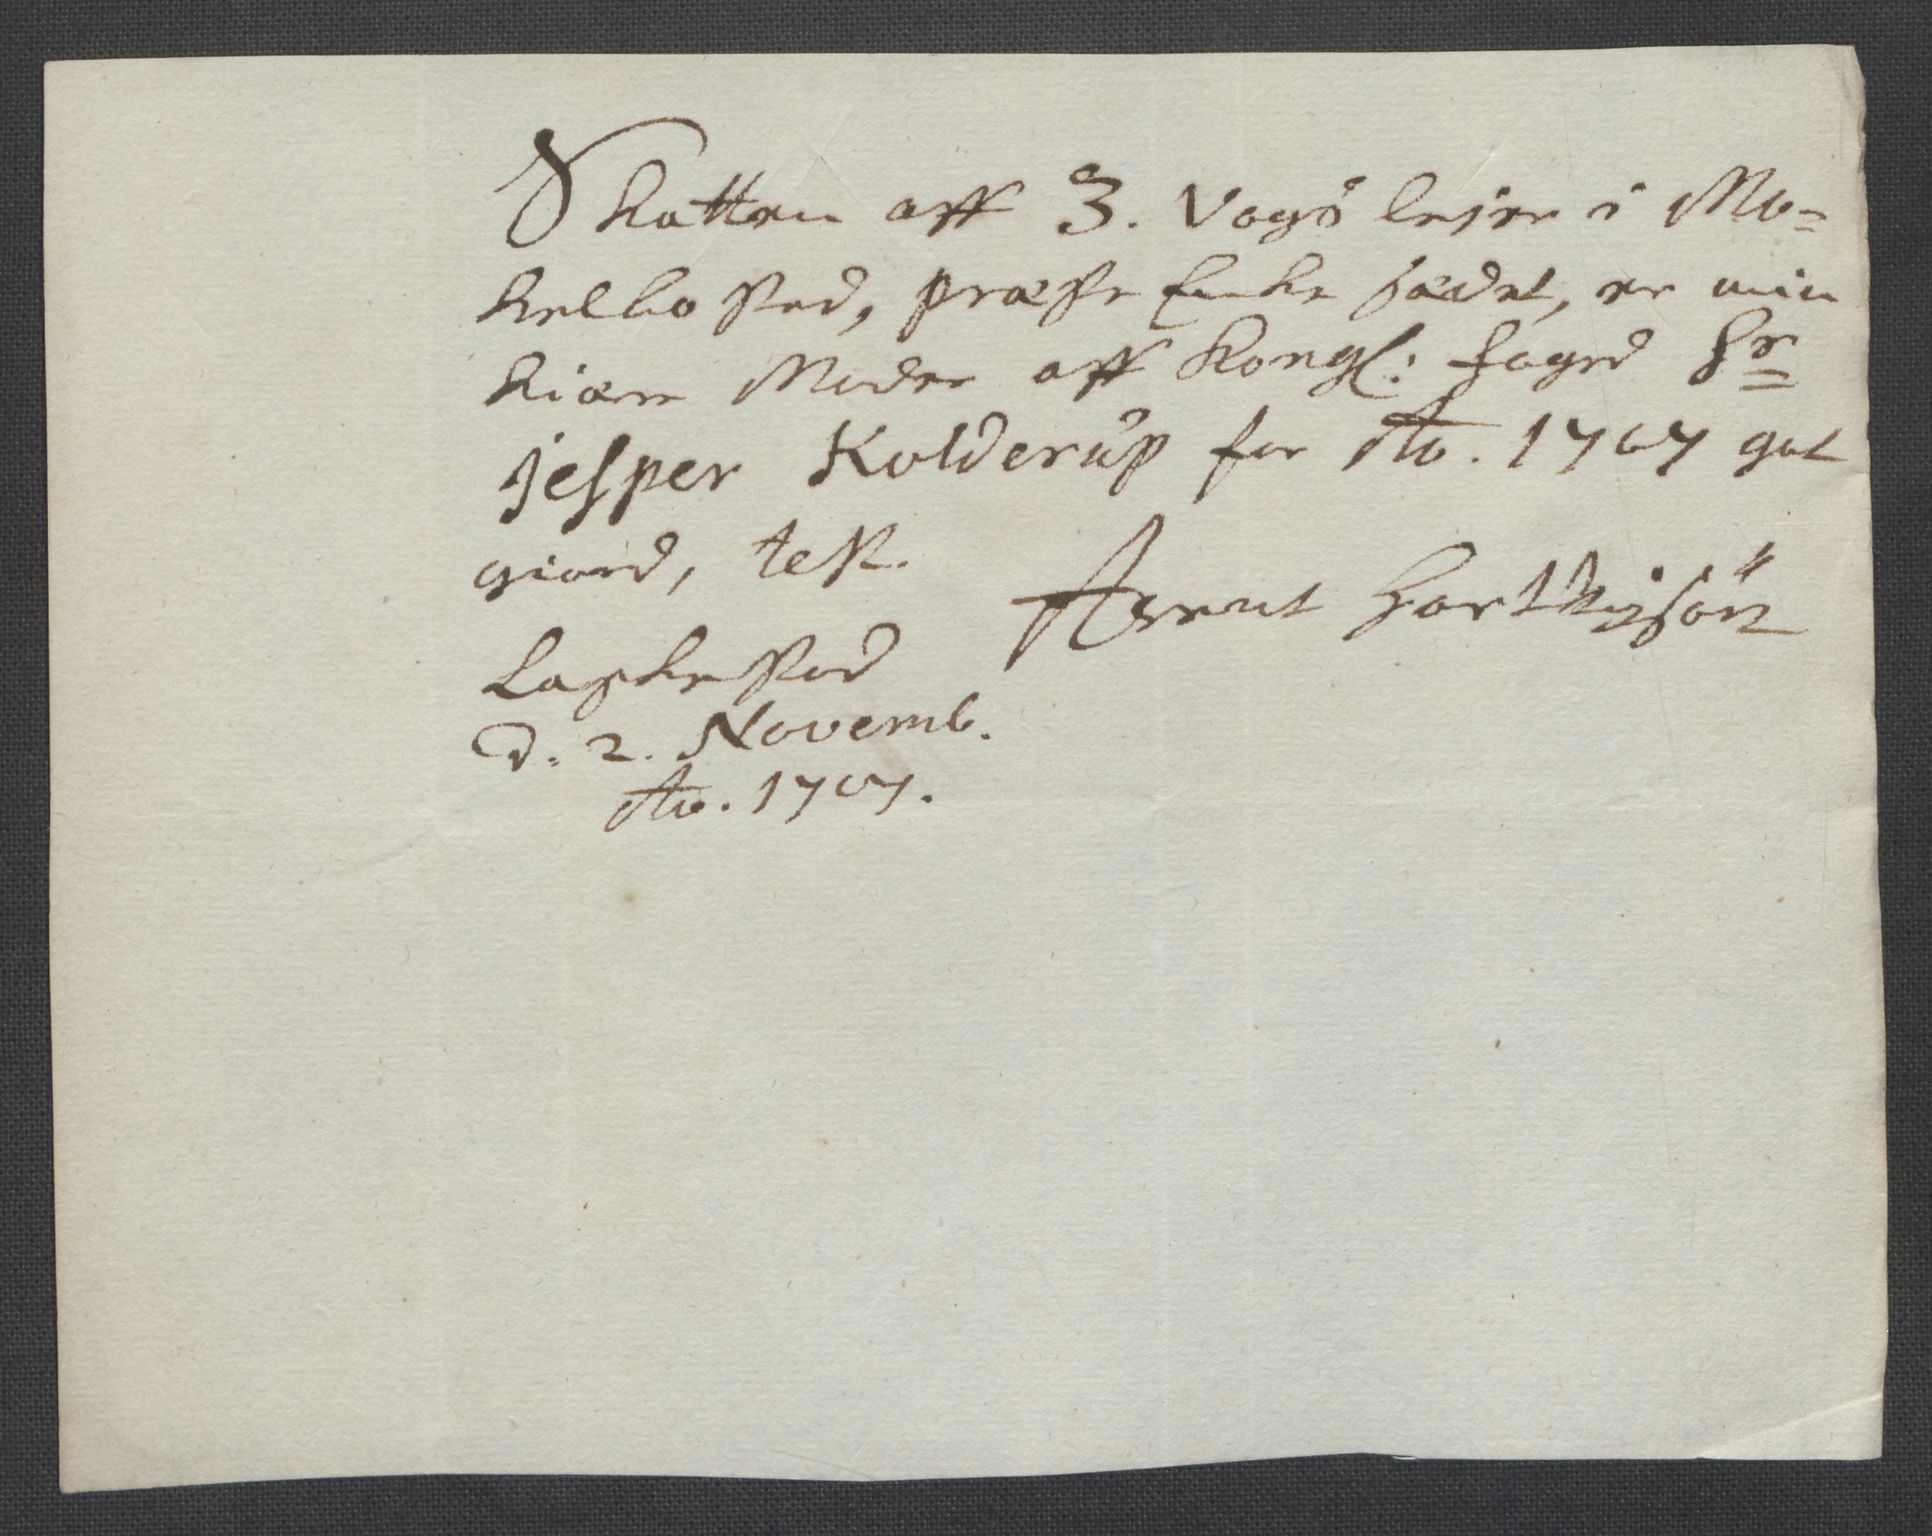 Skatten aff 3. Vogs leier i Mo-
kelbo sted, præste Encke sædet, er min
kiære Moder aff Kongl: foged Hr
Jesper Kolderup for Ao. 1707 got
giord, test.
Arent Hartvigsön
Lagkestad
d. 2. Novemb.
Ao. 1707.